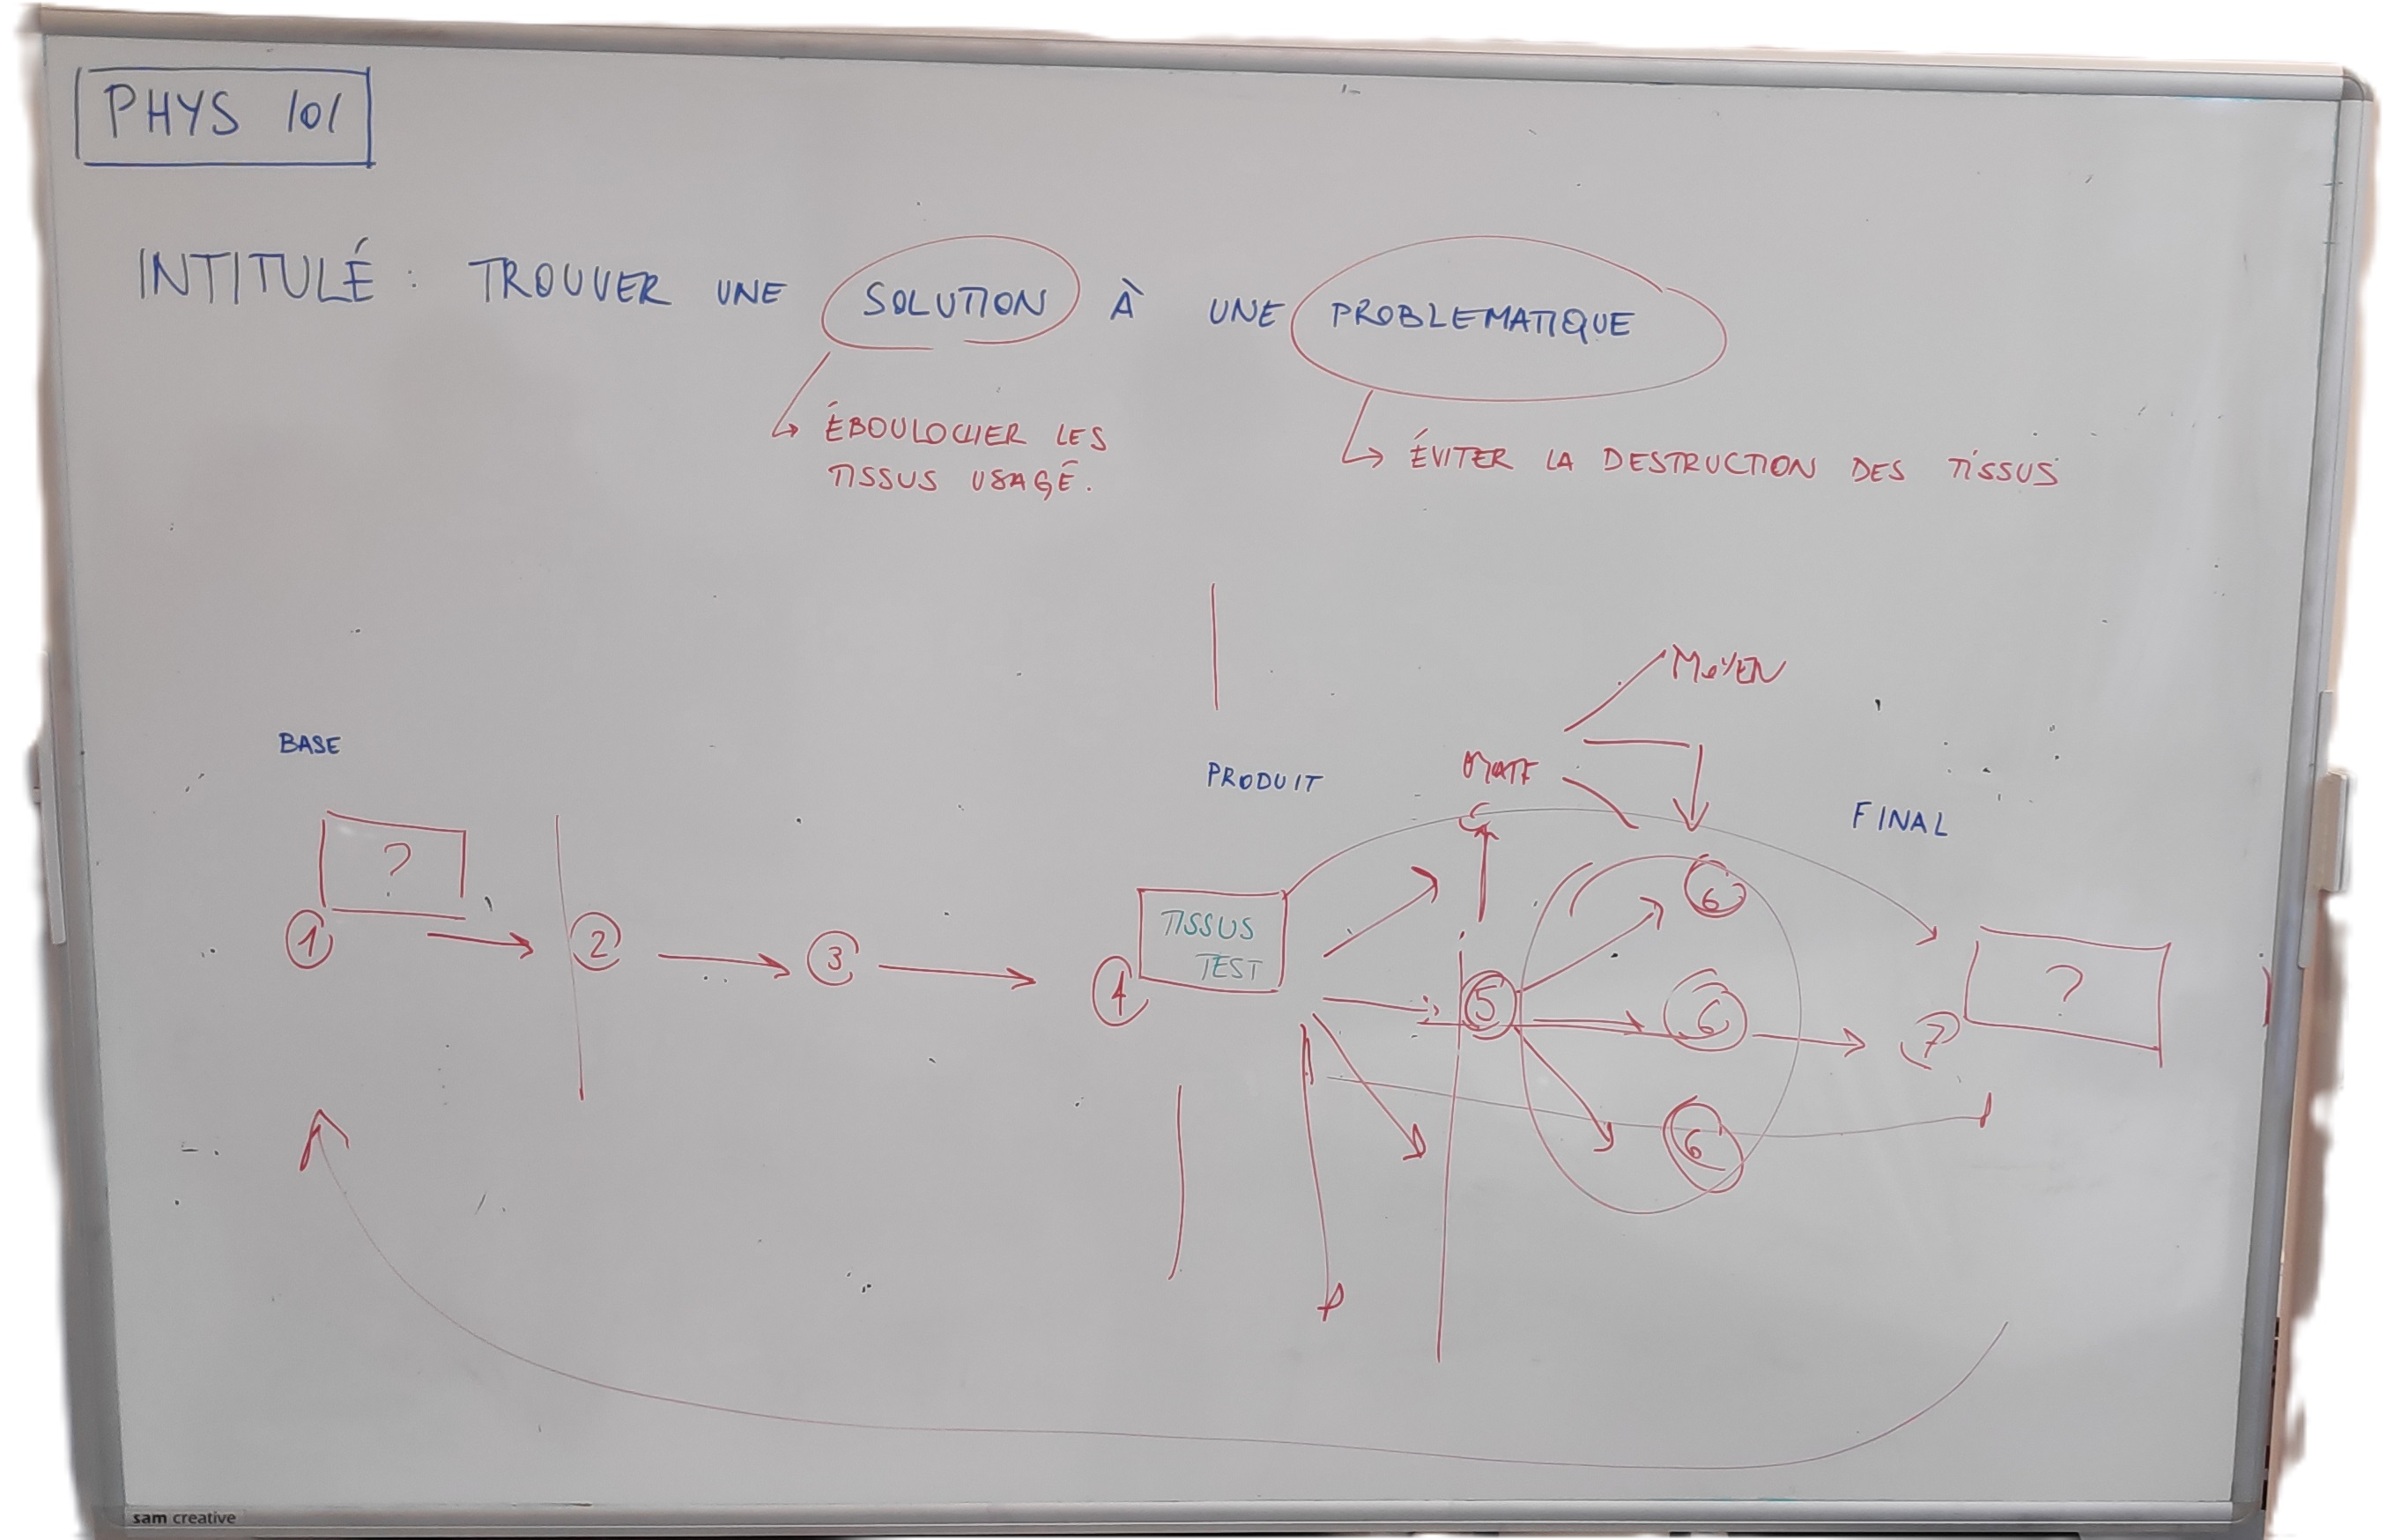 PHYS 101
INTITULÉ : TROUVER UNE SOLUTION À UNE PROBLEMATIQUE
ÉBOULOCHER LES
TISSUS USAGÉ.
ÉVITER LA DESTRUCTION DES TISSUS
MOYEN
BASE
PRODUIT
FINAL
?
1
2
3
4
TISSUS
TEST
5
6
6
6
7
?
sam creative